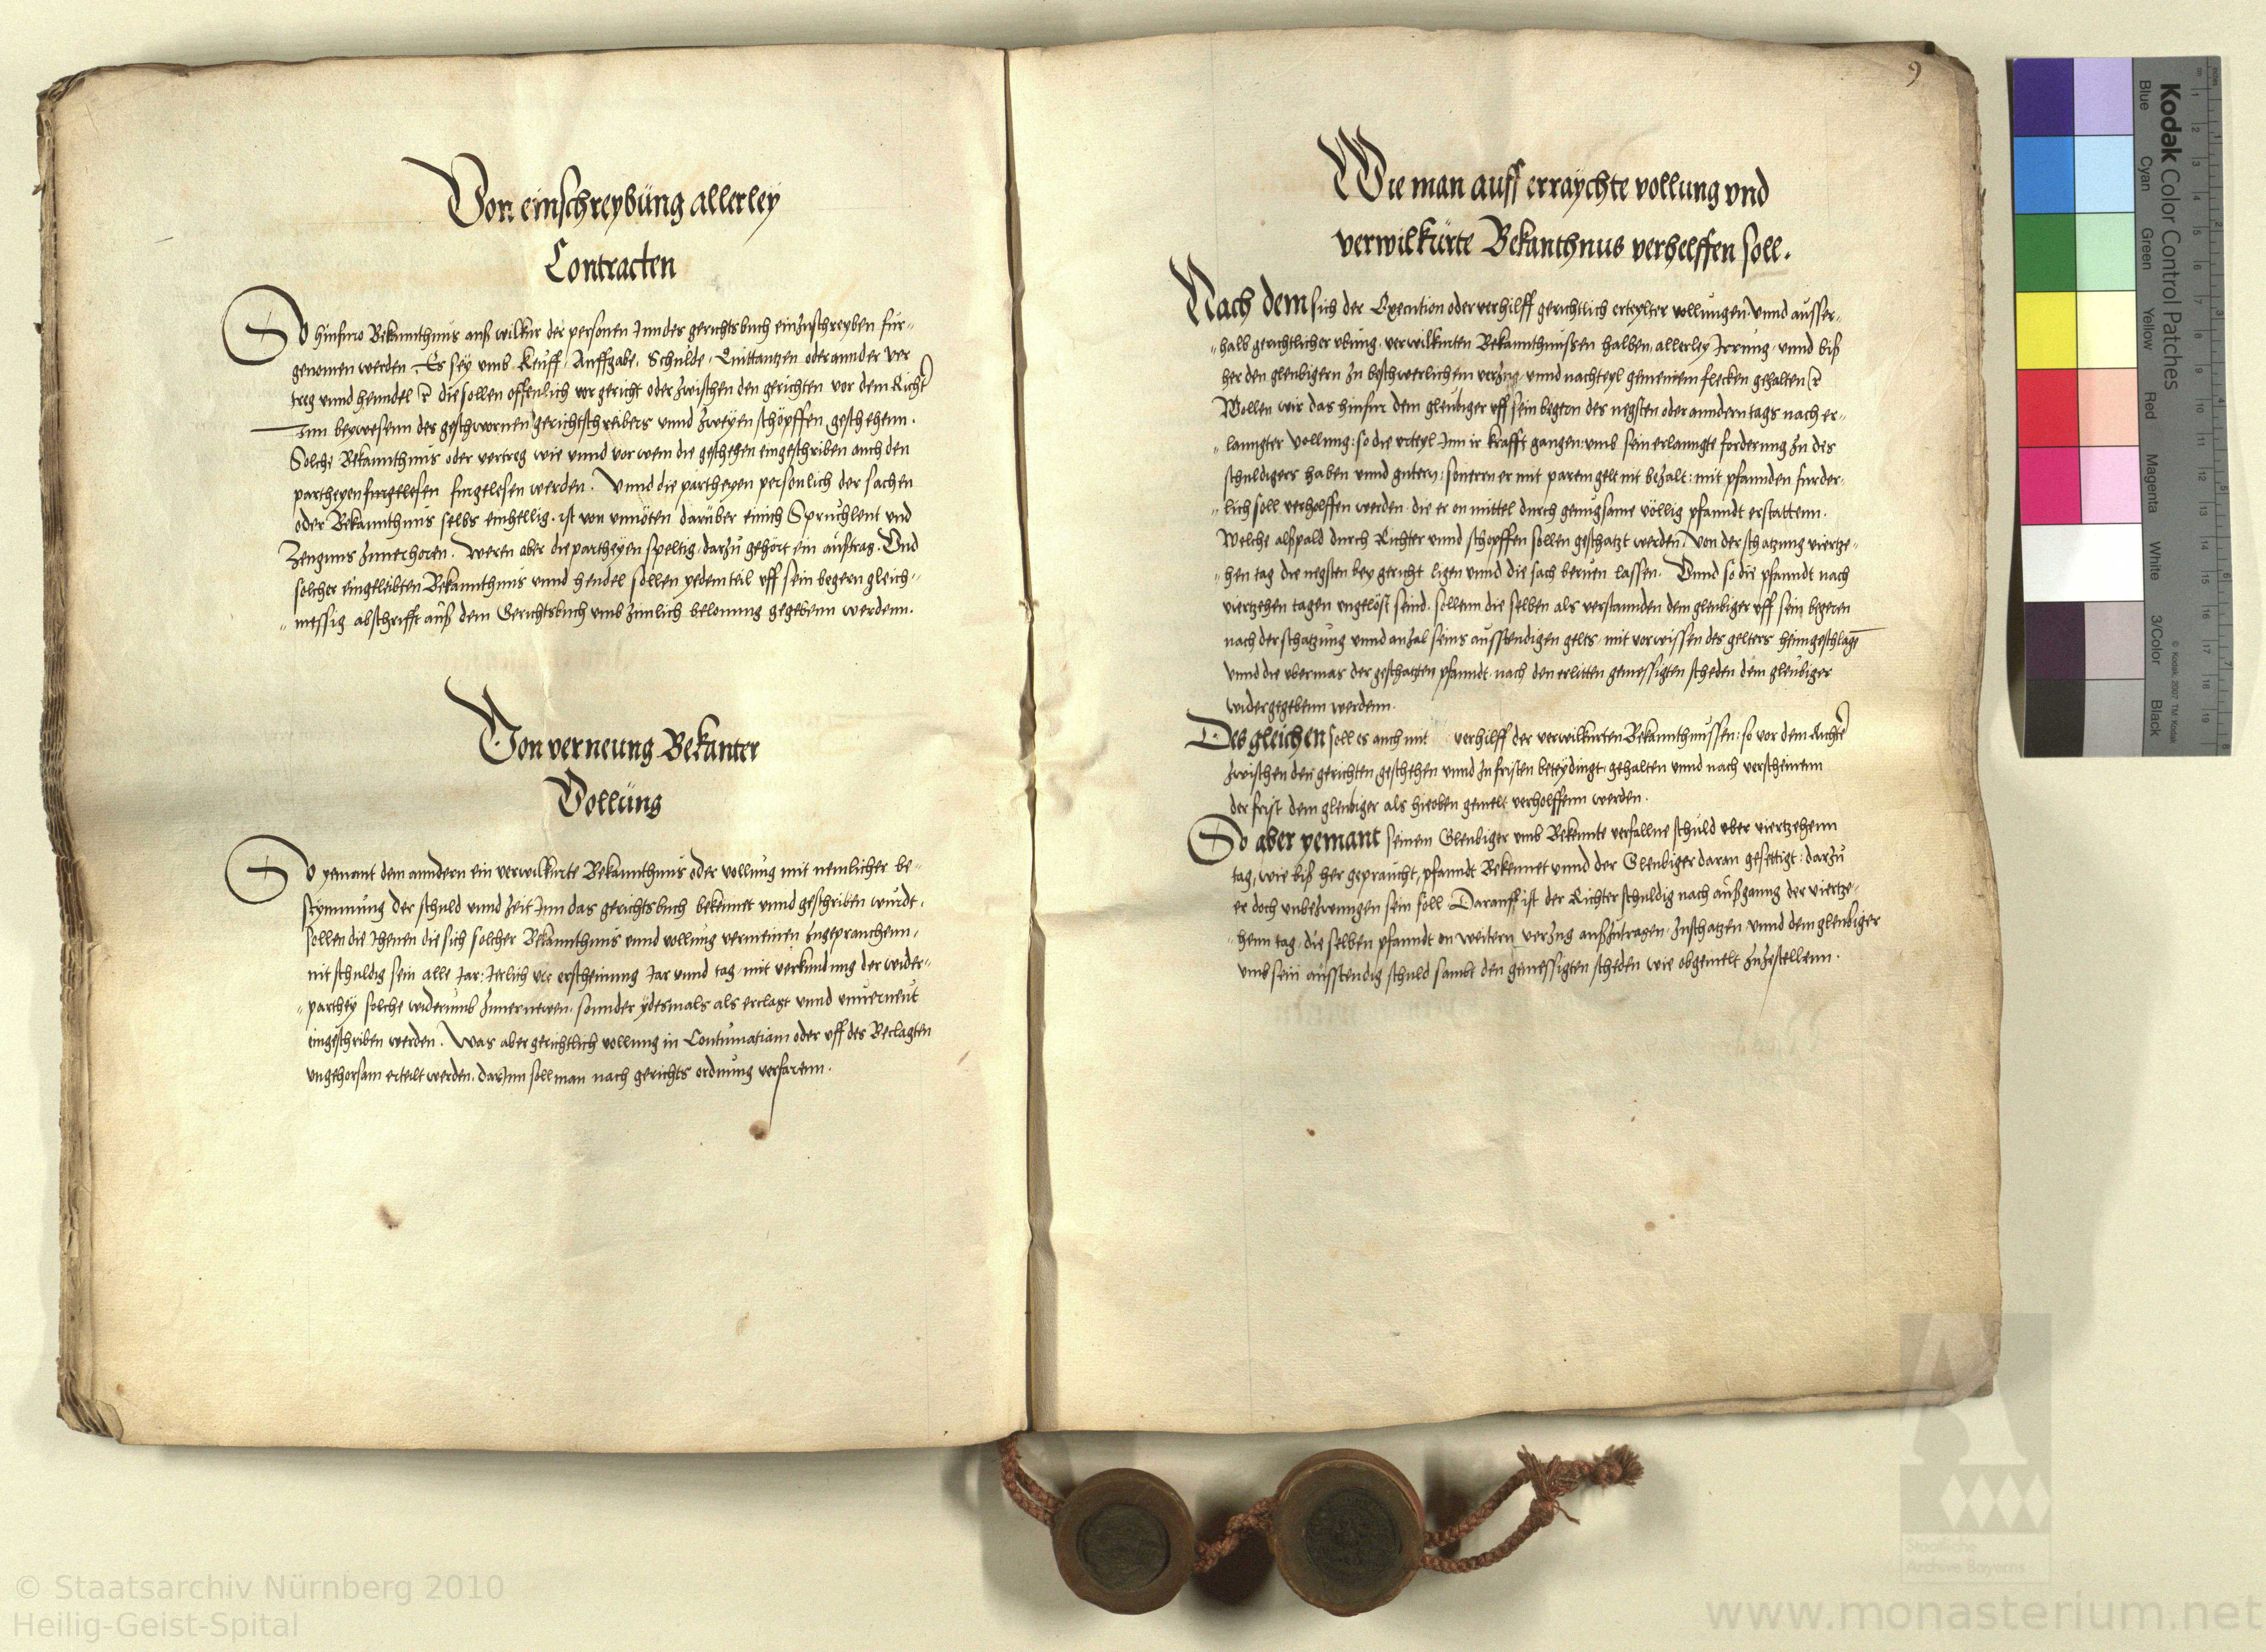 Von einschreybung allerley
Contracten
So hinfuro Bekanntnus auß wilkur der personen Inn des gerichtsbuch einzuschreyben fur-
genomen werden Es sey vmb Keuff, Auffgabe, Schulde, Quittantzen oder annder ver
treg vnnd henndel die sollen offenlich vor gericht oder zwischen den gerichten vor dem Richt
Inn beywesenn des geschwornen gerichtschreibers vnnd zweyen schöpffen geschehenn.
Solche Bekanntnus oder vertreg wie vnnd vor wem die geschehen eingeschriben auch den
partheyen furgelesen furgelesen werden. Vnnd die partheyen personlich der sachen
oder Bekanntnus selbs einhellig, ist von vnnöten darüber einich Spruchleut vnd
Zeugnus zuuerhoren. Weren aber die partheyen speltig, darzu gehört ein außtrag. Vnd
solcher eingeleibten Bekanntnus vnnd hendel sollen yedem teil vff sein begern gleich-
messig abschrifft auß dem Gerichtsbuch vmb zimlich belonung gegebenn werdenn.
Von verneung Bekanter
Vollung
So yemant dem anndern ein verwilkurte Bekanntnus oder vollung mit nemlicher be-
stymmung der schuld vnnd zeit Inn das gerichtsbuch bekennet vnnd geschriben wurdt,
sollen die Ihenen die sich solcher Bekanntnus vnnd vollung vermeinen zugeprauchenn,
nit schuldig sein alle Jar Jerlich vor erscheinung Jar vnnd tag mit verkundung der wider-
parthey solche widerumb zuuernewen, sonnder ydesmals als erclagt vnnd vnuerneut
eingeschriben werden. Was aber gerichtlich vollung in Contumatiam oder vff des Beclagten
vngehorsam erteilt werden, darInn soll man nach gerichts ordnung verfarenn.
9
Wie man auff erraychte vollung vnd
verwilkürte Bekanthnus verhelffen soll.
Nach dem sich der Execution oder verhilff gerichtlich erteylter vollungen vnnd ausser-
halb gerichtlicher vbung, verwilkurten Bekanntnussen halben, allerley Irrung, vnnd biß
her den gleubigern zu beschwerlichem verzug vnnd nachteyl gemeinem flecken gehalten
Wollen wir das hinfur dem gleubiger vff sein begern des negsten oder anndern tags nach er-
lanngter vollung: so die vrteyl Inn ir krafft gangen: vmb sein erlanngte forderung zu des
schuldigers haben vnnd gutern, souern er mit parem gelt nit bezalt: mit pfannden furder-
lich soll verholffen werden, die er on mittel durch genugsame völlig pfanndt erstattenn.
Welche alßpald durch Richter vnnd schopffen sollen geschatzt werden, Von der schatzung viertze-
hen tag die negsten bey gericht ligen vnnd die sach beruen lassen. Vnnd so die pfanndt nach
viertzehen tagen vngelöst seind, sollenn die selben als verstannden dem gleubiger vff sein begeren
nach der schatzung vnnd anzal seins ausstendigen gelts, mit vorwissen des gelters heimgeschlagē
vnnd die vbermas der geschatzten pfanndt nach den erlitten gemessigten scheden dem gleubiger
widergegebenn werdenn.
Des gleichen soll es auch mit verhilff der verwilkurten Bekanntnussen: so vor dem Richte
zwischen den gerichten geschehen vnnd zu fristen beteydingt, gehalten vnnd nach verscheinenn
der frist dem gleubiger als hieoben gemelt verholffenn werden.
So aber yemant seinem Gleubiger vmb Bekennte verfallne schuld vber viertzehenn
tag, wie biß her gepraucht, pfanndt Bekennet vnnd der Gleubiger daran gesettigt: darzu
er doch vnbezwungen sein soll. Darauff ist der Richter schuldig nach außganng der viertze-
henn tag, die selben pfanndt on weitern verzug außzutragen, zuschatzen vnnd dem gleubiger
vmb sein ausstendig schuld sambt den gemessigten scheden wie obgemelt zuzestellenn.
Kodak Color Control Patches
Blue Cyan Green Yellow Red Magenta White 3/Color Black
© Kodak, 2007 TM: Kodak
© Staatsarchiv Nürnberg 2010
Heilig-Geist-Spital
Staatliche
Archive Bayerns
www.monasterium.net